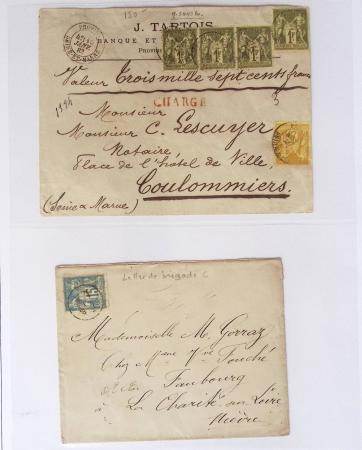 150
J. TARTOIS
BANQUE ET
Provins
Valeur Trois mille sept cents francs
CHARGÉ
3
Monsieur
Monsieur C. Lescuyer
Notaire,
Place de l'hôtel de Ville,
Coulommiers.
(Seine & Marne)
Lettre de brigade C
Mademoiselle M. Gorraz
Chez Mme Vve Fouché
Faubourg
à La Charité sur Loire
Nièvre